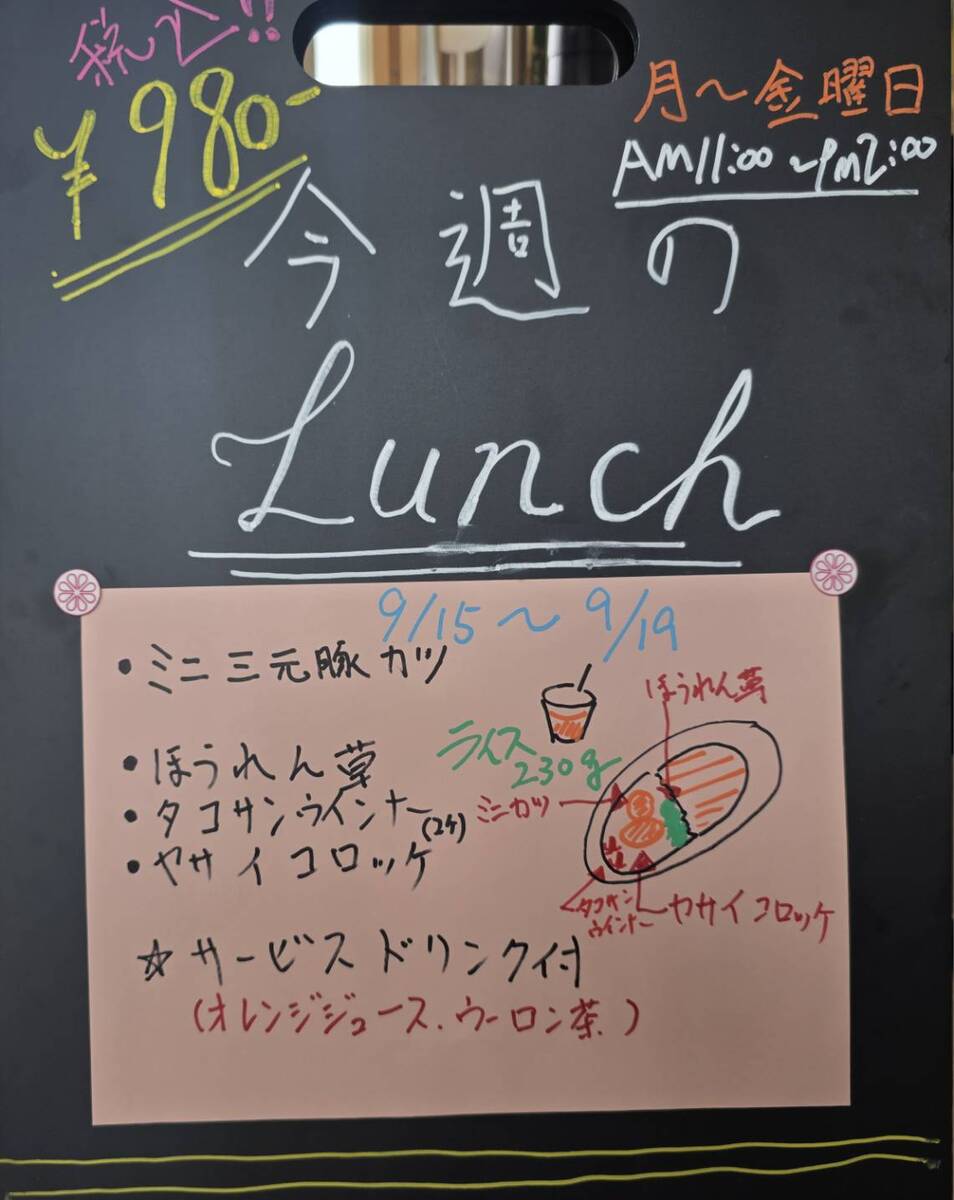 税込!!
¥980-
月〜金曜日
AM11:00〜PM2:00
今週の
Lunch
9/15〜9/19
・ミニ三元豚カツ
・ほうれん草
・タコサンウインナー(2ケ)
・ヤサイコロッケ
ほうれん草
ライス
230g
ミニカツ
タコサン
ウインナー
ヤサイコロッケ
☆サービスドリンク付
(オレンジジュース.ウーロン茶.)